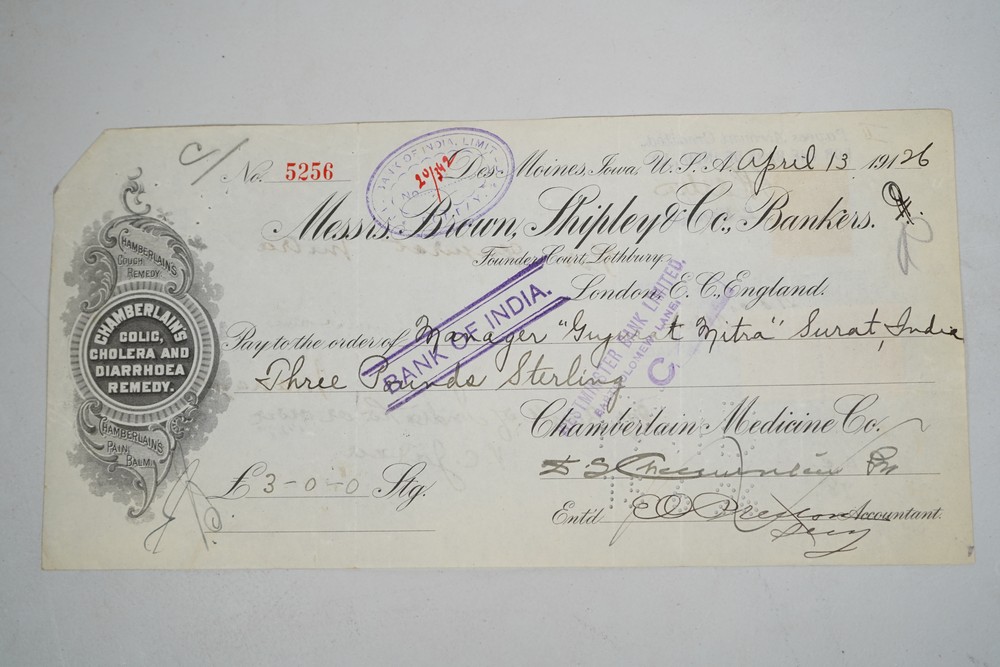 No. 5256
BANK OF INDIA, LIMIT
No 20/342
Des Moines, Iowa, U.S.A. April 13 19126
Messrs. Brown, Shipley & Co., Bankers.
Founders Court, Lothbury
London, E. C., England.
Pay to the order of Manager "Gujerat Mitra" Surat, India
Three Pounds Sterling
BANK OF INDIA.
WESTMINSTER BANK LIMITED.
BARTHOLOMEW LANE
C
Chamberlain Medicine Co.
£ 3-0-0 Stg.
Ent'd Accountant.
Secy
CHAMBERLAIN'S
COUGH
REMEDY
CHAMBERLAIN'S
COLIC,
CHOLERA AND
DIARRHOEA
REMEDY.
CHAMBERLAIN'S
PAIN
BALM